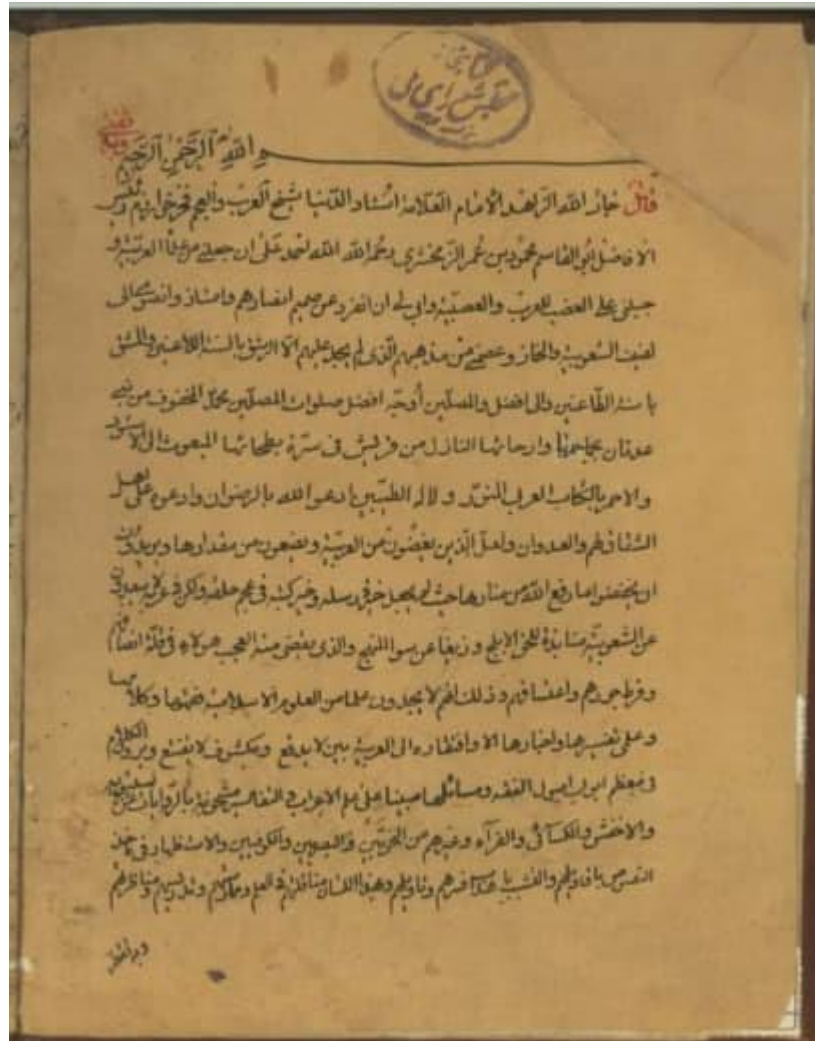 الله الرحمن الرحيم
قال جار الله الامام العلامة استاد الدنيا شيخ العرب والعجم فخر خوارزم
الافاضل ابو القاسم محمود بن عمر الزمخشري رحمه الله الله احمد على ان جعلني من علماء العربية و
جبلني على الغضب للعرب والعصبية وابى لي ان انفرد عن صميم انصارهم وامتاز وانضوي الى
لفيف الشعوبية وانحاز وعصمني من مذهبهم الذي لم يجد عليهم الا الرشق بالسنة اللاعنين والمشق
باسنة الطاعنين والى افضل والمصلين اوجه افضل صلوات المصلين محمد المحفوف من بني
عدنان بجماجمها وارحائها النازل من قريش في سرة بطحائها المبعوث الى الاسود
والاحمر بالكتاب العربي المنور و لاله الطيبين ادعو الله بالرضوان وادعوه على اهل
الشقاق لهم والعدوان ولعل الذين يغضون من العربية ويضعون من مقدارها ويريدون
ان يخفضوا ما رفع الله من منارها حيث لم يجعل خيرة رسله وخير كتبه في عجم خلقه ولكن في عربه لا يبعدون
عن الشعوبية منابذة للحق الابلج وزيغا عن سوا المنهج والذي يقضى منه العجب هولاء في قلة انصافهم
وفرط جورهم واعتسافهم وذلك انهم لا يجدون علما من العلوم الاسلامية فقهها وكلامها
وعلمي تفسيرها واخبارها الا وافتقاره الى العربية بين لا يدفع ومكشوف لا يتقنع ويرون الكلام
في معظم ابواب اصول الفقه ومسائلها مبنيا على علم الاعراب و التفاسير مشحونة بالروايات عن سيبويه
والاخفش والكسائي والفراء وغيرهم من النحويين البصريين والكوفيين والاستظهار في ماخذ
النصوص باقاويلهم والتشبث باهداب فسرهم وتاويلهم وبهذا اللسان مناقلتهم في العلم ومحاورتهم وتدريسهم ومناظرتهم